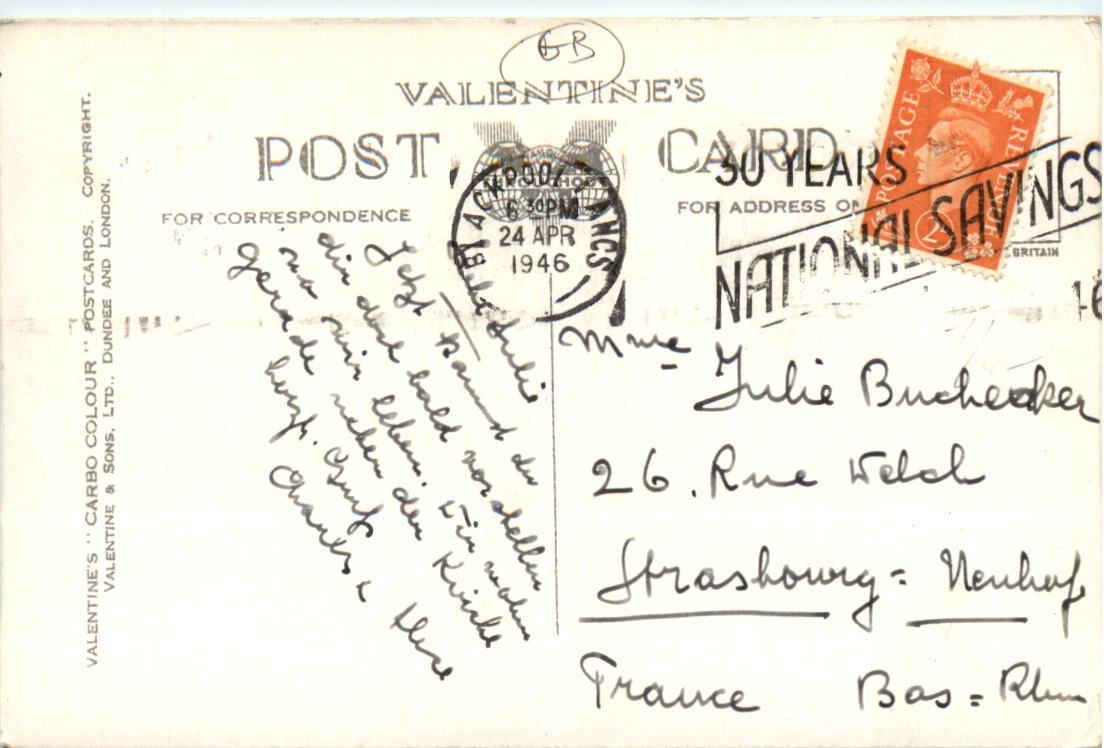 GB
VALENTINE'S
POST CARD
FOR CORRESPONDENCE
FOR ADDRESS ON
BRITAIN
BLACKPOOL LANCS
6 30 PM
24 APR
1946
30 YEARS
NATIONAL SAVINGS
46
POSTAGE
REVENUE
2
VALENTINE'S "CARBO COLOUR" POSTCARDS. COPYRIGHT.
VALENTINE & SONS, LTD., DUNDEE AND LONDON.
Liebe Julie
Jetzt kannst du
dir dort bald vorstellen
wo wir leben. Wir wohnen
gerade neben der Kirche
Gruß
Charles &
Mme Julie Buchecker
26. Rue Welch
Strasbourg = Neuhof
France Bas = Rhin